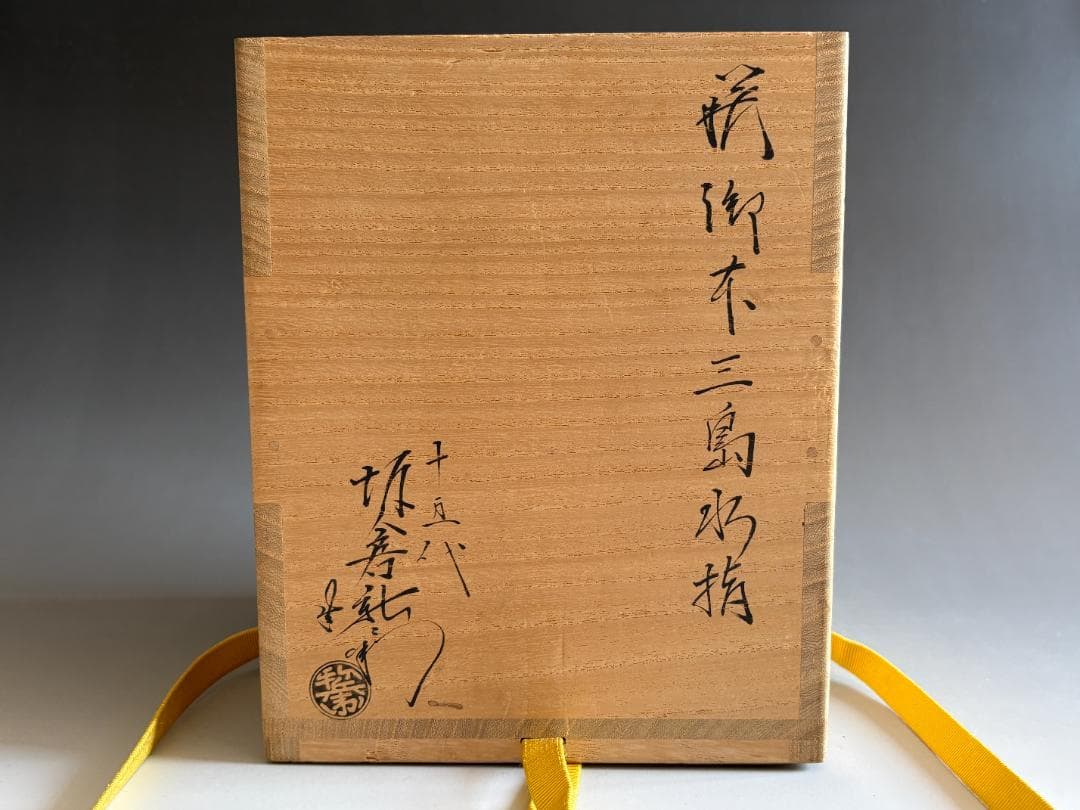 萩御本三島水指
十五代
坂倉新兵衛